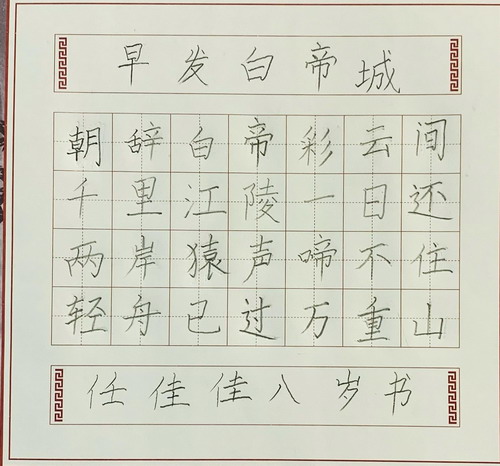 早发白帝城
朝辞白帝彩云间
千里江陵一日还
两岸猿声啼不住
轻舟已过万重山
任佳佳八岁书